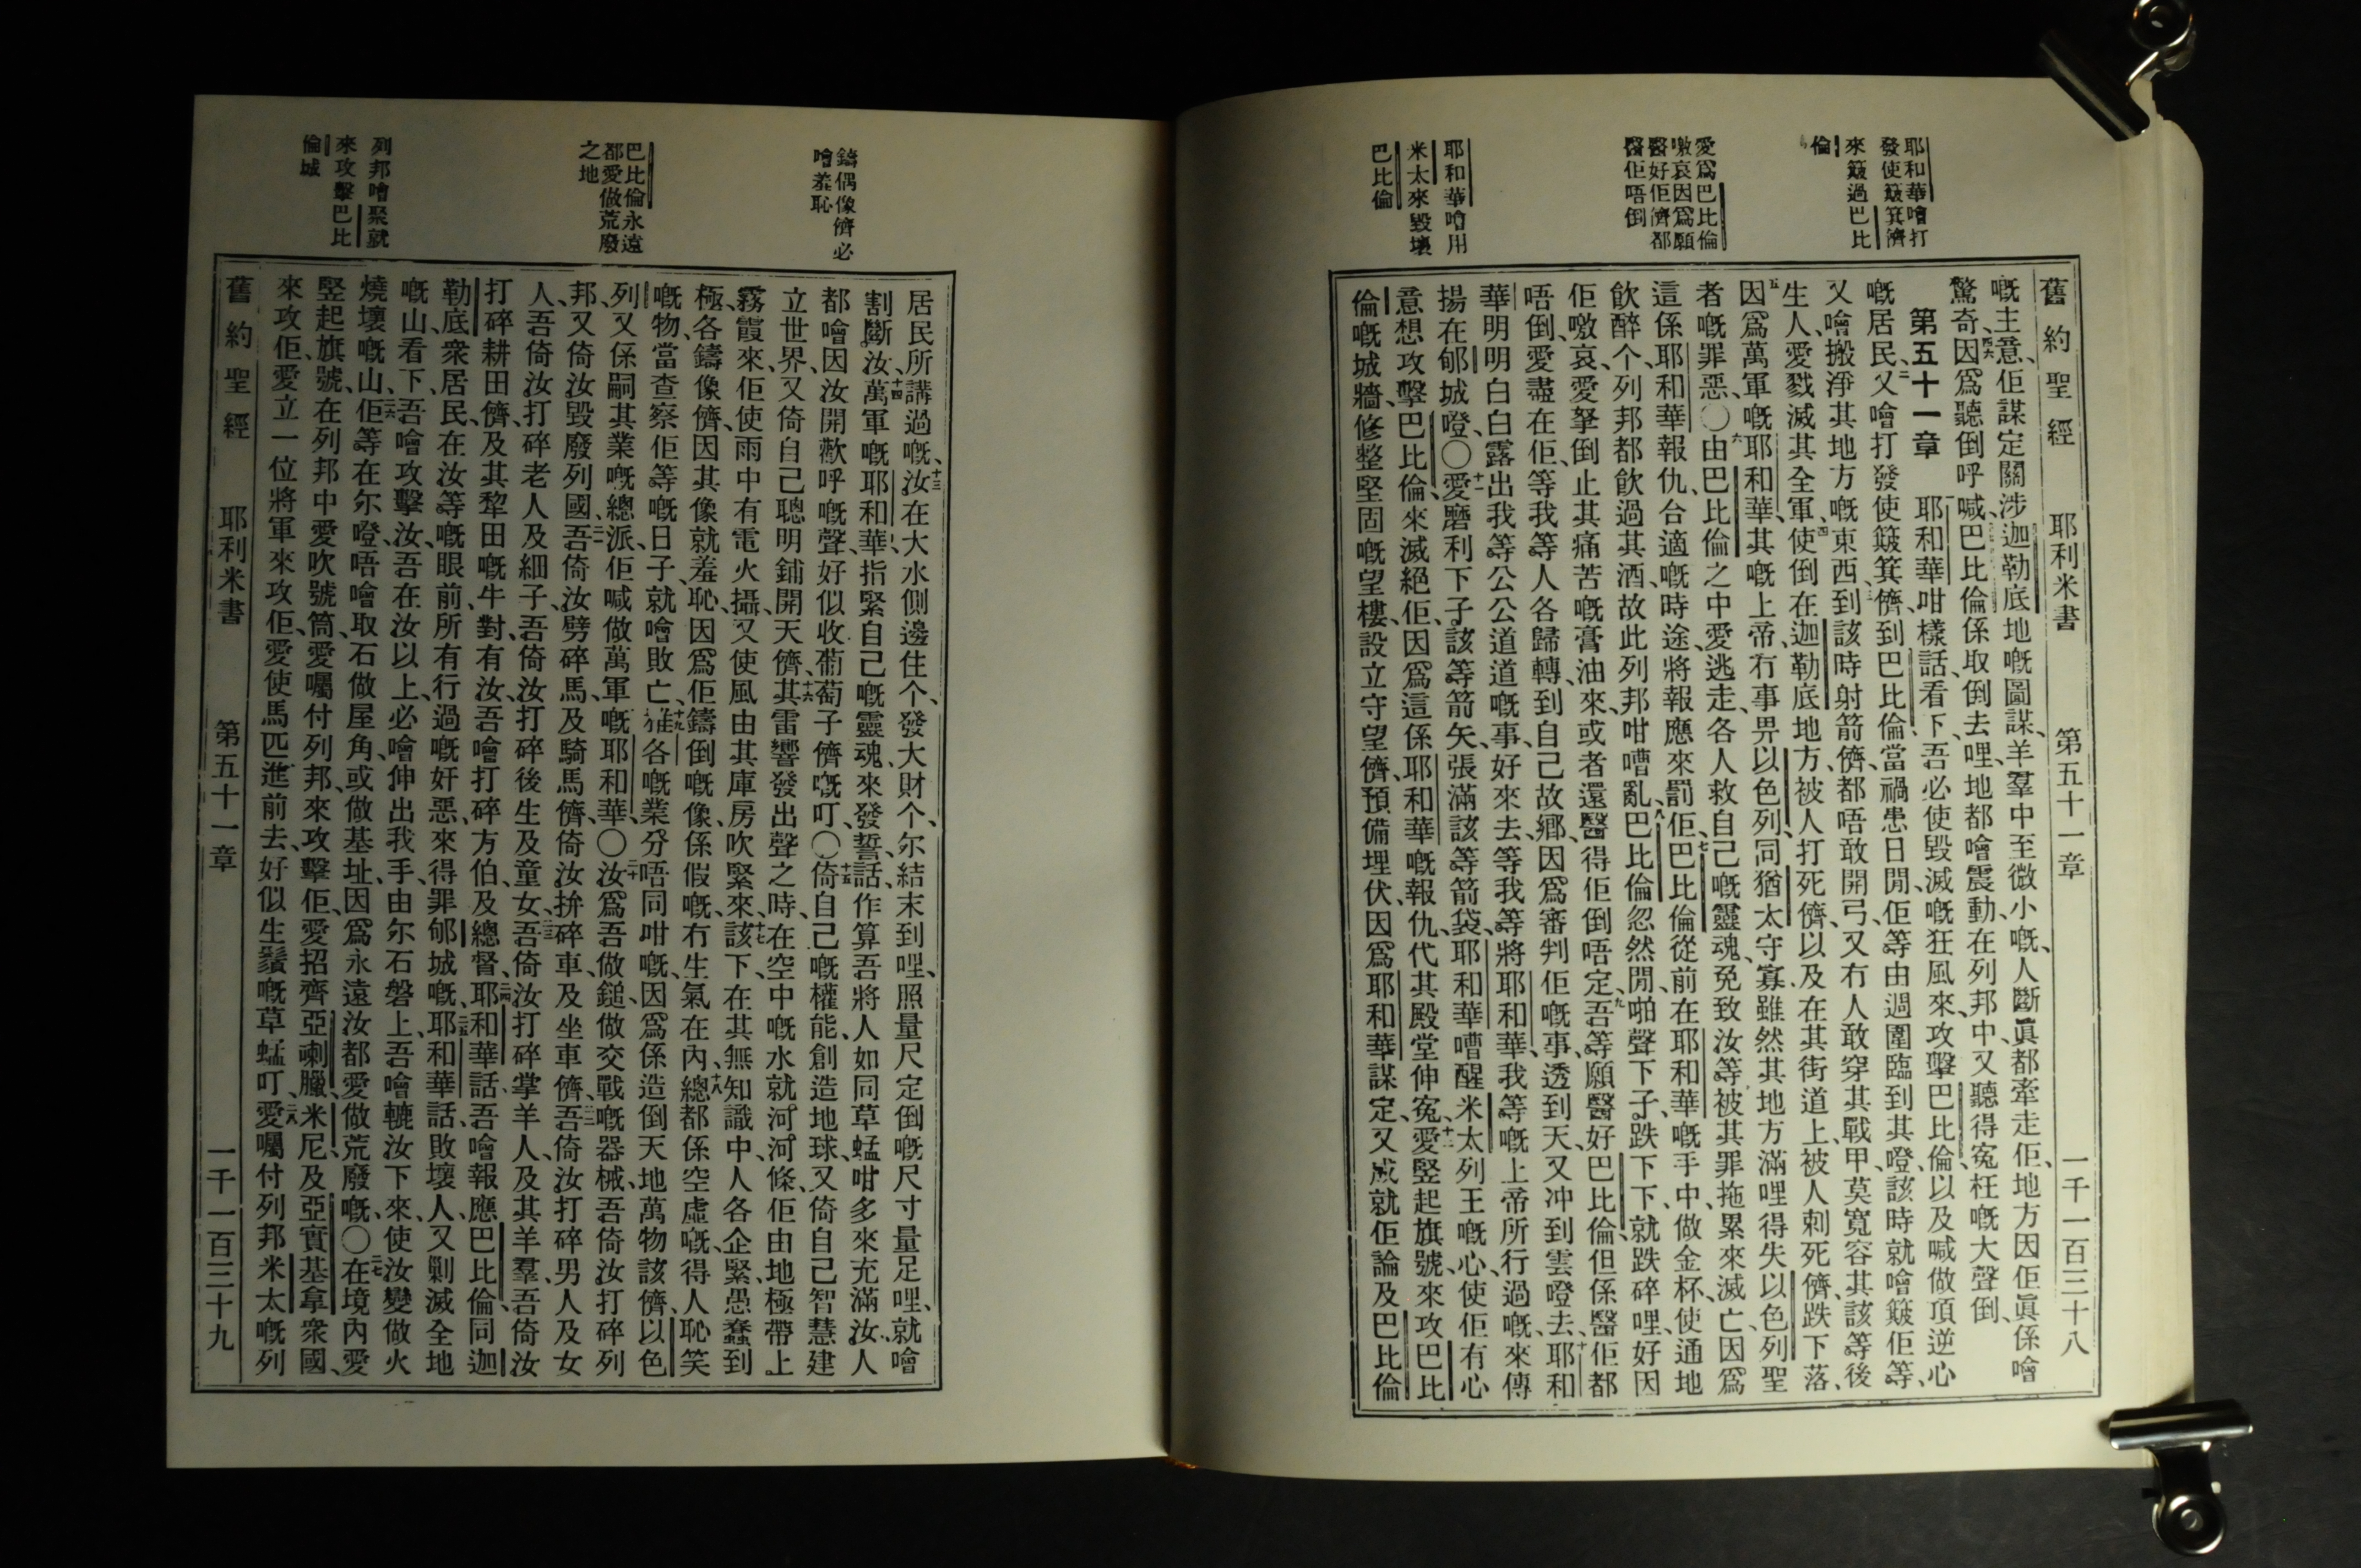 耶和華噲打
發使簸箕儕
來簸過巴比
倫
愛爲巴比倫
噭哀因爲願
醫好佢儕都
醫佢唔倒
耶和華噲用
米太來毀壞
巴比倫
舊約聖經 耶利米書 第五十一章 一千一百三十八
嘅主意、佢謀定關涉迦勒底地嘅圖謀、羊羣中至微小嘅、人斷眞都牽走佢、地方因佢眞係噲
驚奇、四六因爲聽倒呼喊、巴比倫係取倒去哩、地都噲震動、在列邦中、又聽得寃枉嘅大聲倒、
第五十一章 一耶和華咁樣話、看下、吾必使毀滅嘅狂風來攻擊巴比倫、以及喊做頂逆心
嘅居民、二又噲打發使簸箕儕、到巴比倫、當禍患日間、佢等由週圍臨到其噔、該時就噲簸佢等、
又噲搬淨其地方嘅東西、三到該時射箭儕、都唔敢開弓、又冇人敢穿其戰甲、莫寬容其該等後
生人、愛戮滅其全軍、四使倒在迦勒底地方、被人打死儕、以及在其街道上、被人刺死儕、跌下落、
五因爲萬軍嘅耶和華、其嘅上帝冇事畀以色列、同猶太守寡、雖然其地方滿哩得失以色列聖
者嘅罪惡、〇六由巴比倫之中愛逃走、各人救自己嘅靈魂、免致汝等被其罪拖累來滅亡、因爲
這係耶和華報仇、合適嘅時途、將報應來罰佢、七巴比倫從前在耶和華嘅手中、做金杯、使通地
飲醉个、列邦都飲過其酒、故此列邦咁嘈亂、八巴比倫忽然間、啪聲下子、跌下下、就跌碎哩、好因
佢噭哀、愛拏倒止其痛苦嘅膏油來、或者還醫得佢倒唔定、九吾等願醫好巴比倫、但係醫佢都
唔倒、愛盡在佢、等我等人各歸轉、到自己故鄉、因爲審判佢嘅事、透到天、又冲到雲噔去、十耶和
華明明白白露出我等公公道道嘅事、好來去、等我等、將耶和華、我等嘅上帝所行過嘅、來傳
揚在郇城噔、〇十一愛磨利下子該等箭矢、張滿該等箭袋、耶和華嘈醒米太列王嘅心、使佢有心
意想攻擊巴比倫、來滅絕佢、因爲這係耶和華嘅報仇、代其殿堂伸寃、十二愛竪起旗號、來攻巴比
倫嘅城牆、修整堅固嘅望樓、設立守望儕、預備埋伏、因爲耶和華謀定、又成就佢論及巴比倫
鑄偶像儕必
噲羞恥
巴比倫永遠
都愛做荒廢
之地
列邦噲聚就
來攻擊巴比
倫城
居民所講過嘅、十三汝在大水側邊住个、發大財个、尔結末到哩、照量尺定倒嘅尺寸量足哩、就噲
割斷汝、十四萬軍嘅耶和華、指緊自己嘅靈魂、來發誓話、作算吾將人如同草蜢咁多、來充滿汝、人
都噲因汝開歡呼嘅聲、好似收葡萄子儕嘅叮、〇十五倚自己嘅權能、創造地球、又倚自己智慧建
立世界、又倚自己聰明、鋪開天儕、十六其雷響發出聲之時、在空中嘅水就河河條、佢由地極帶上
霧霞來、佢使雨中有電火攝、又使風由其庫房吹緊來、十七該下、在其無知識中、人各企緊、愚蠢到
極、各鑄像儕、因其像就羞恥、因爲佢鑄倒嘅像係假嘅、冇生氣在內、十八總都係空虛嘅、得人恥笑
嘅物、當查察佢等嘅日子、就噲敗亡、十九雅各嘅業分、唔同咁嘅、因爲係造倒天地萬物該儕、以色
列、又係嗣其業嘅總派、佢喊做萬軍嘅耶和華、〇二十汝爲吾做鎚、做交戰嘅器械、吾倚汝打碎列
邦、又倚汝毀廢列國、二一吾倚汝劈碎馬、及騎馬儕、倚汝拚碎車、及坐車儕、二二吾倚汝打碎男人及女
人、吾倚汝打碎老人及細子、吾倚汝打碎後生及童女、二三吾倚汝打碎掌羊人、及其羊羣、吾倚汝
打碎耕田儕、及其犂田嘅牛對、有汝、吾噲打碎方伯、及總督、二四耶和華話、吾噲報應巴比倫、同迦
勒底衆居民、在汝等嘅眼前、所有行過嘅奸惡、來得罪郇城嘅、二五耶和華話、敗壞人、又剿滅全地
嘅山、看下、吾噲攻擊汝、吾在汝以上、必噲伸出我手、由尔石磐上、吾噲轆汝下來、使汝變做火
燒壞嘅山、二六佢等在尔噔、唔噲取石做屋角、或做基址、因爲永遠汝都愛做荒廢嘅、〇二七在境內愛
竪起旗號、在列邦中愛吹號筒、愛囑付列邦、來攻擊佢、愛招齊亞喇臘、米尼、及亞實基拿衆國、
來攻佢、愛立一位將軍來攻佢、愛使馬匹進前去、好似生鬚嘅草蜢叮、二八愛囑付列邦米太嘅列
舊約聖經 耶利米書 第五十一章 一千一百三十九